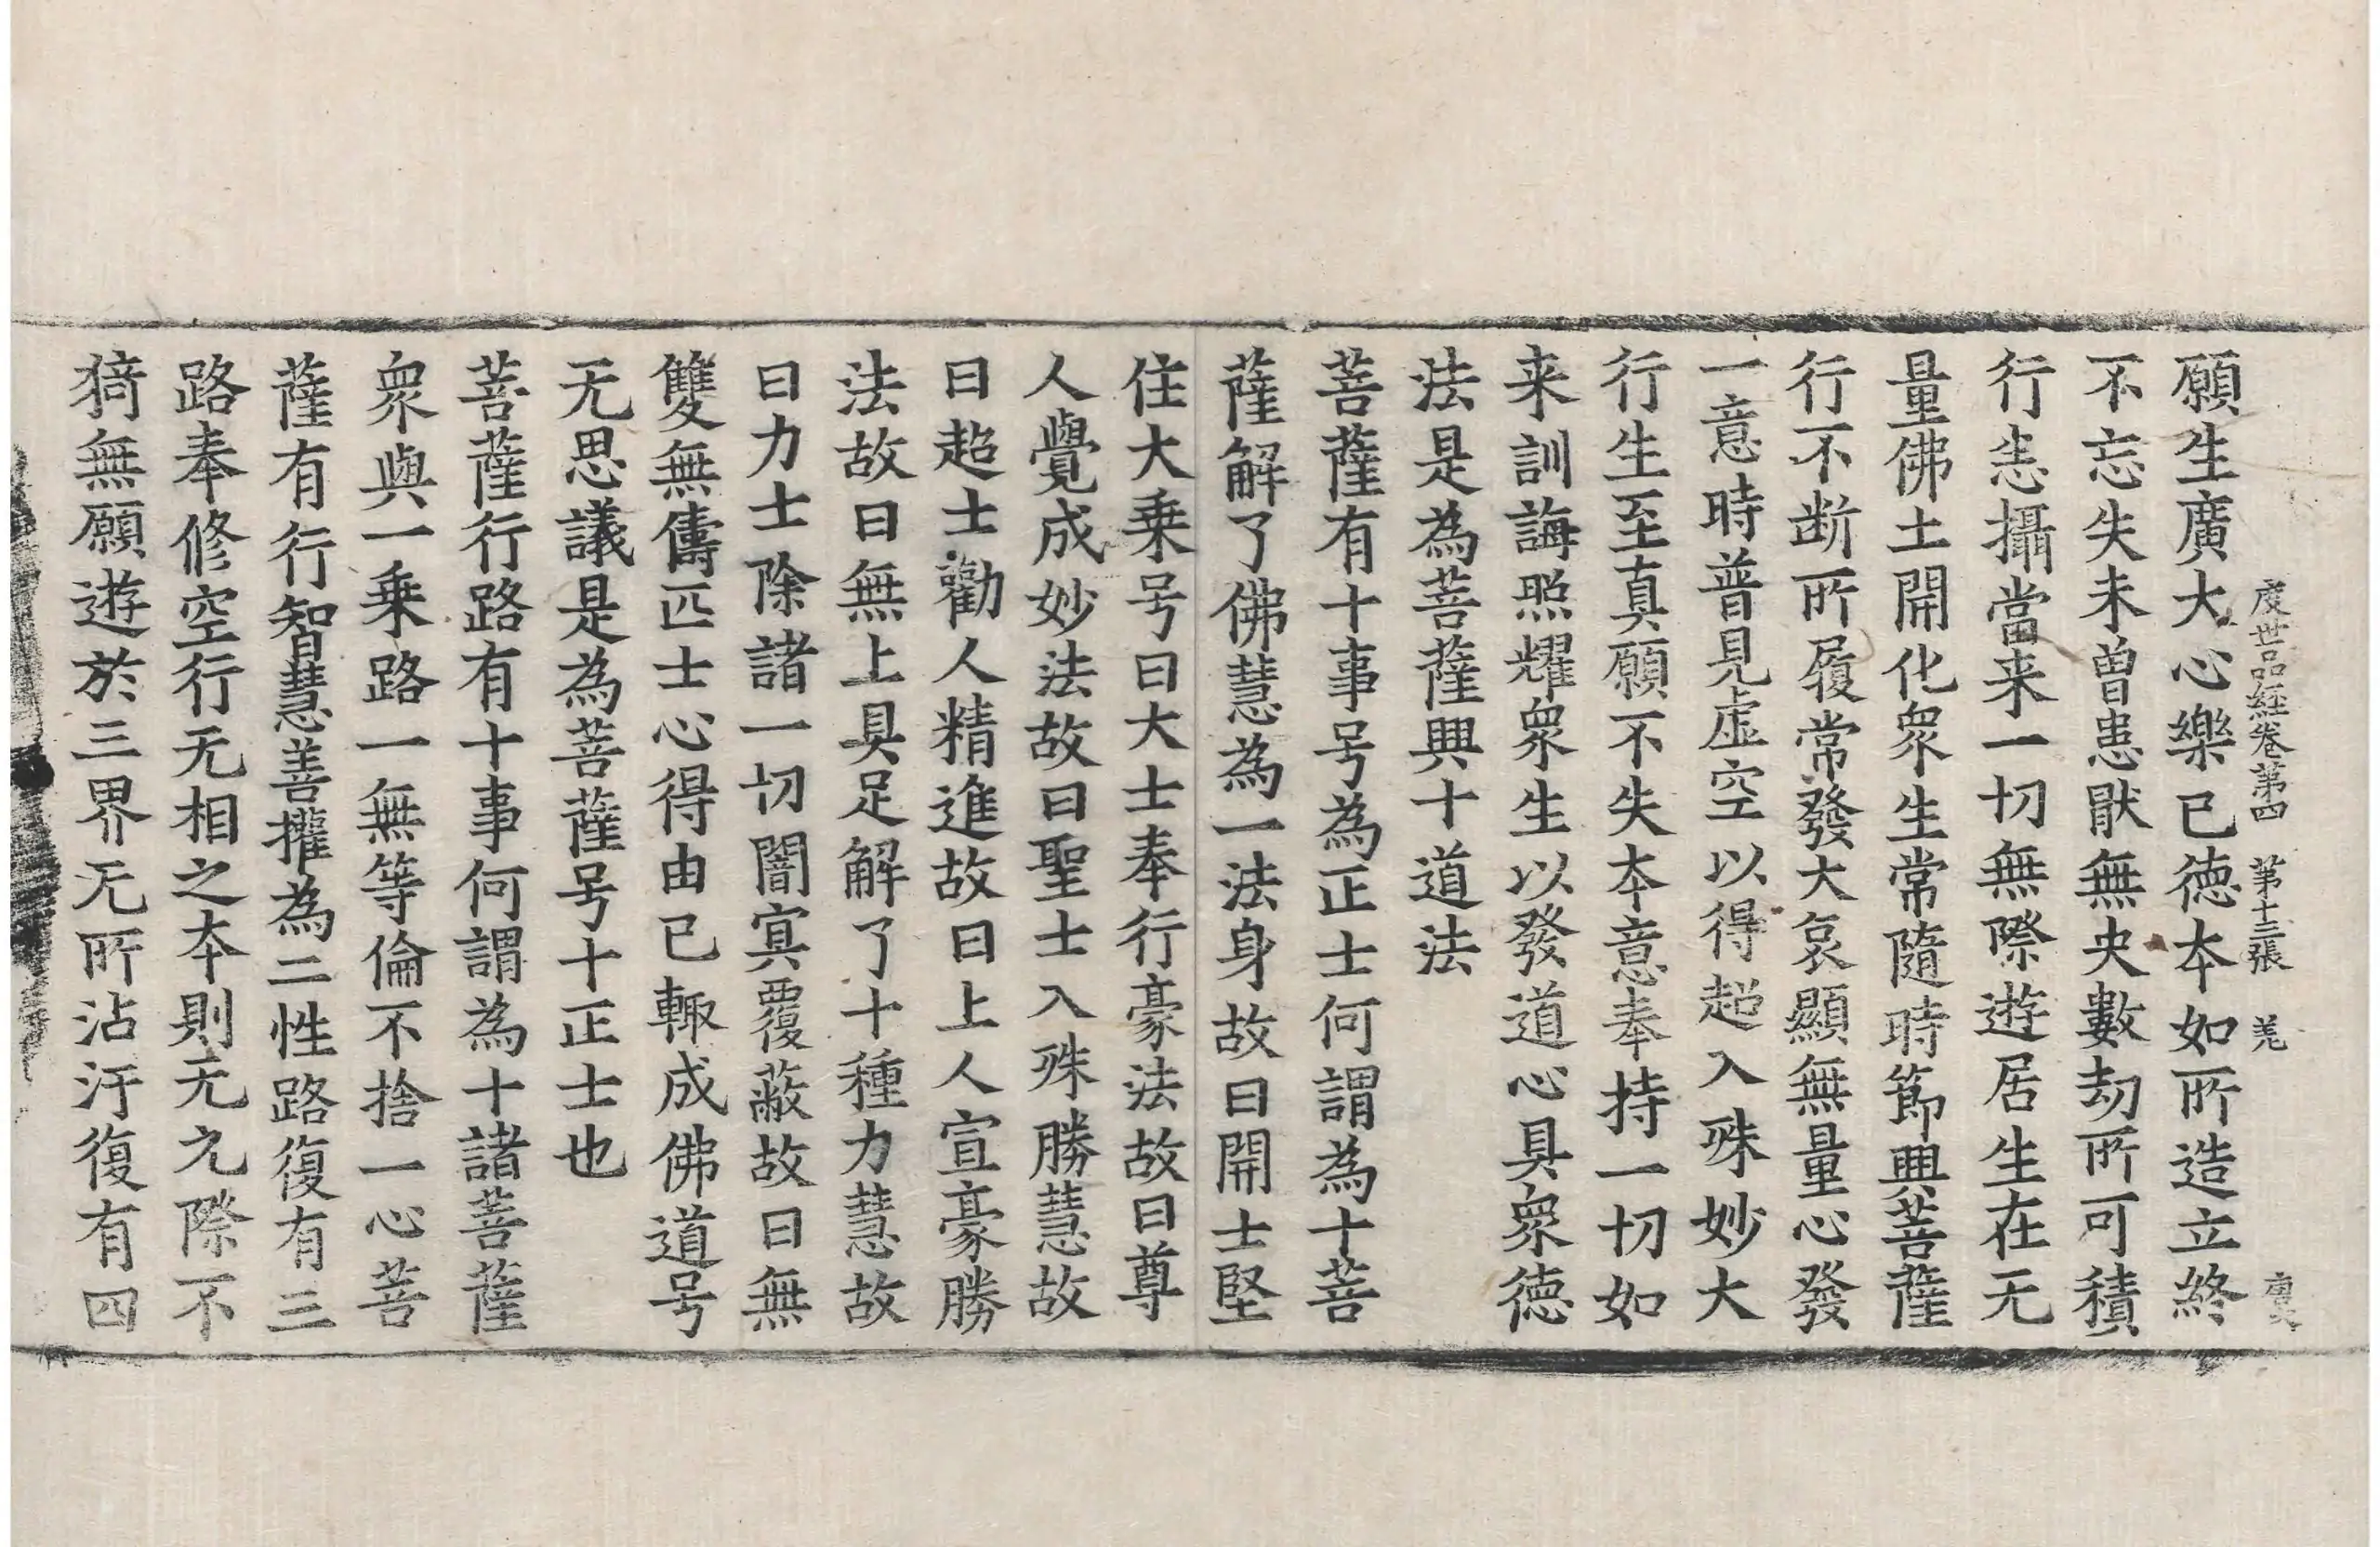 度世品経卷第四　第十三張　羌
願生廣大心樂已徳本如所造立終
不忘失未曽患猒無央數劫所可積
行恚攝當来一切無際遊居生在无
量佛土開化衆生常隨時節興菩薩
行不断所履常發大哀顯無量心發
一意時普見虚空以得超入殊妙大
行生至真願不失本意奉持一切如
来訓誨照耀衆生以發道心具衆徳
法是為菩薩興十道法
菩薩有十事号為正士何謂為十菩
薩解了佛慧為一法身故曰開士堅
住大乗号曰大士奉行豪法故曰尊
人覺成妙法故曰聖士入殊勝慧故
曰超士勸人精進故曰上人宣豪勝
法故曰無上具足解了十種力慧故
曰力士除諸一切闇冥覆蔽故曰無
雙無儔匹士心得由已輙成佛道号
无思議是為菩薩号十正士也
菩薩行路有十事何謂為十諸菩薩
衆與一乗路一無等倫不捨一心菩
薩有行智慧善權為二性路復有三
路奉修空行无相之本則无亢際不
猗無願遊於三界无所沾汙復有四